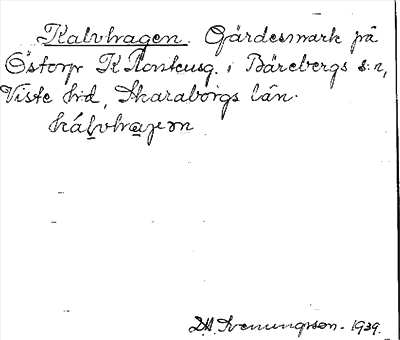 Kalvhagen. Gärdesmark på
Östorp K Plontusg. i Bärebergs s:n,
Viste hd, Skaraborgs län.
kálvhagen
D.A. Svenungsson - 1939.